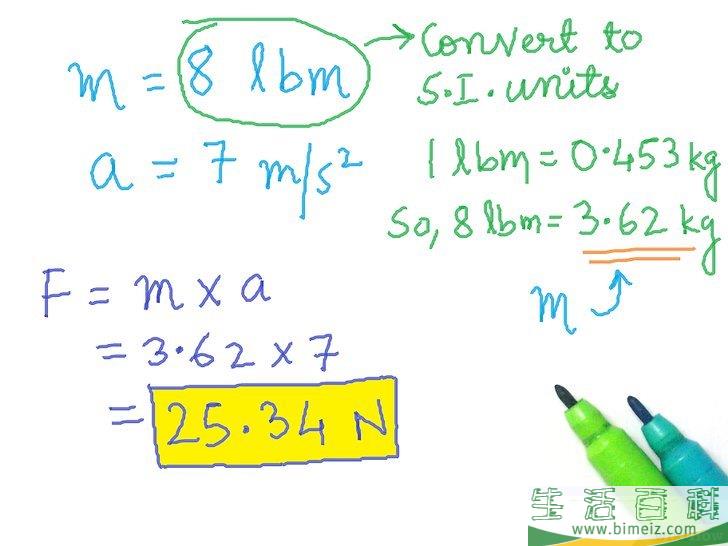 m = 8 lbm → Convert to
S.I. units
a = 7 m/s²
1 lbm = 0.453 kg
So, 8 lbm = 3.62 kg
m
F = m × a
= 3.62 × 7
= 25.34 N
生活百科
www.bimeiz.com